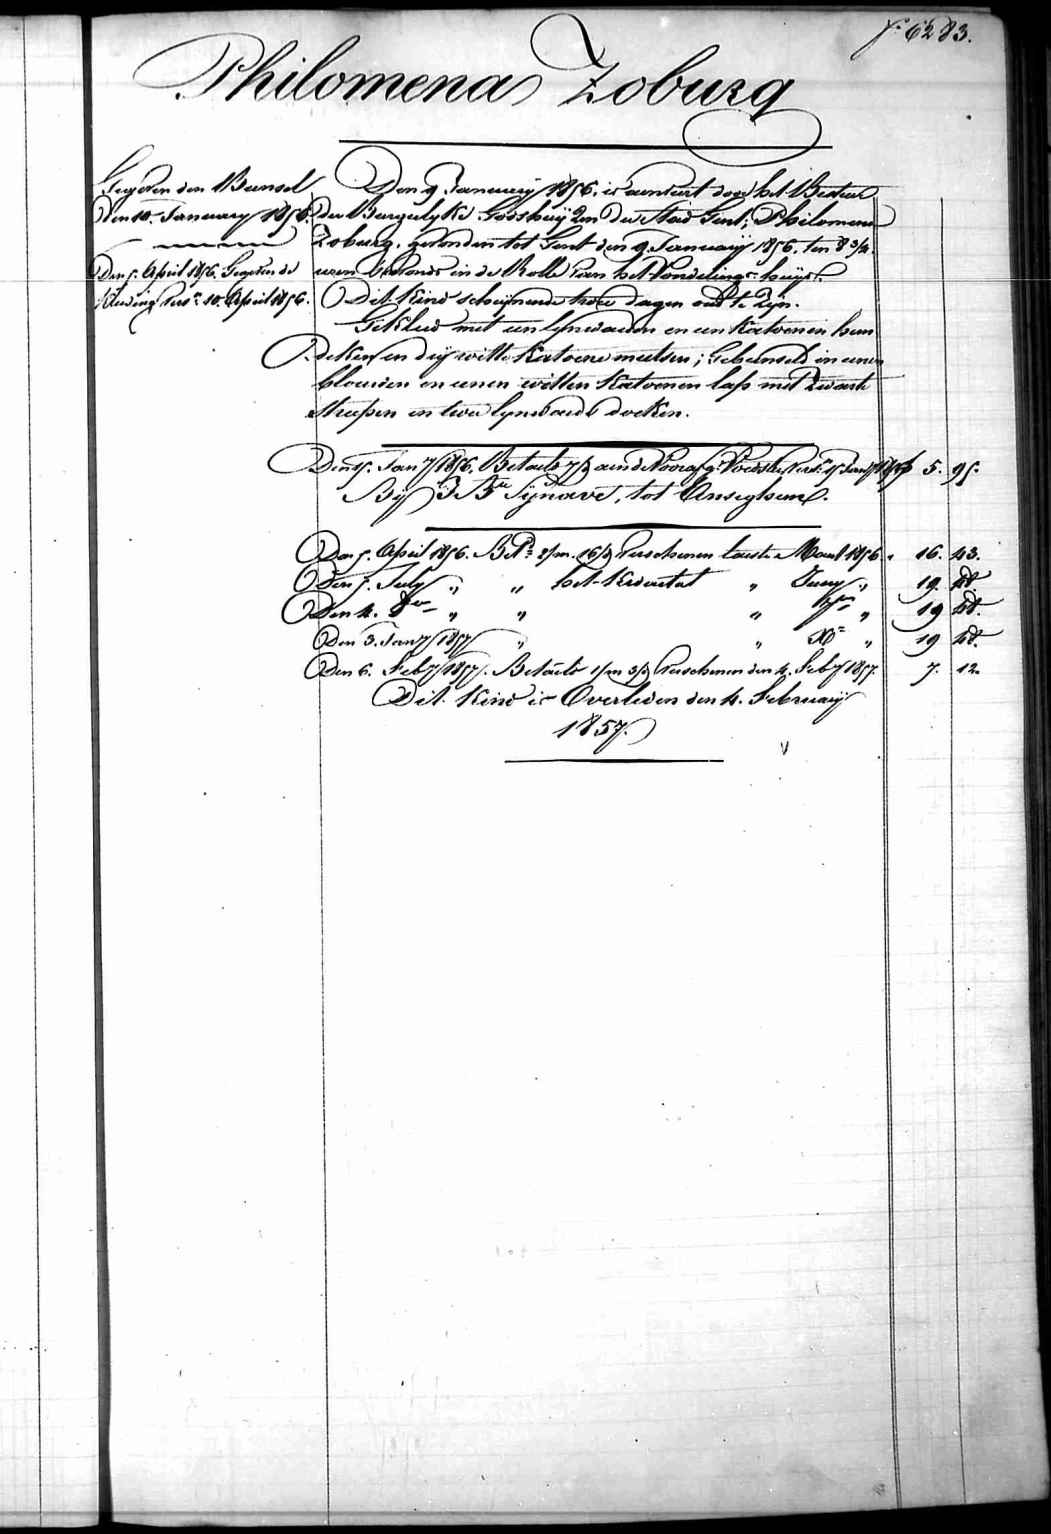 f° 6283.
Philomena Zoburg
Gegeven den Bunsel
Den 10. January 1856.
Den 5. April 1856. Gegeven de
Kleeding 10. April 1856.
Den 9 January 1856. is aenveert door het Bestier
der Burgelyke Godshuyzen der Stad Gent; Philomena
Zoburg. gevonden tot Gent den 9. January 1856. ten 8 3/4
uren 's avonds in de Rolle van het Vondelings-huys.
Dit kind scheynende twee dagen oud te zyn.
Gekleed met een lynwaeden en een katoenen hem
deken en dry witte katoene mutsen; Gebunseld in eenen
blauwen en eenen witten katoenen lap met zwarte
streepen en twee lynwaede doeken.
Den 15. Jany 1856. Betaeld aen de 5. 95.
By J. Bte Synave, tot Anseghem.
Den 5. April 1856. Bet. 2/m. 16/d Verschenen laeste Maert 1856. 16. 43.
Den 5. July " " het kwartael " Juny " 19. 28
Den 4. 8er " " " 7er " 19 28.
Den 3. Jany 1857 " " Xr " 19 28.
Den 6. Feby 1857. Betaeld 1/m 3/d Verschenen den 4. Feby 1857. 7. 12.
Dit kind is Overleden den 4. February
1857.